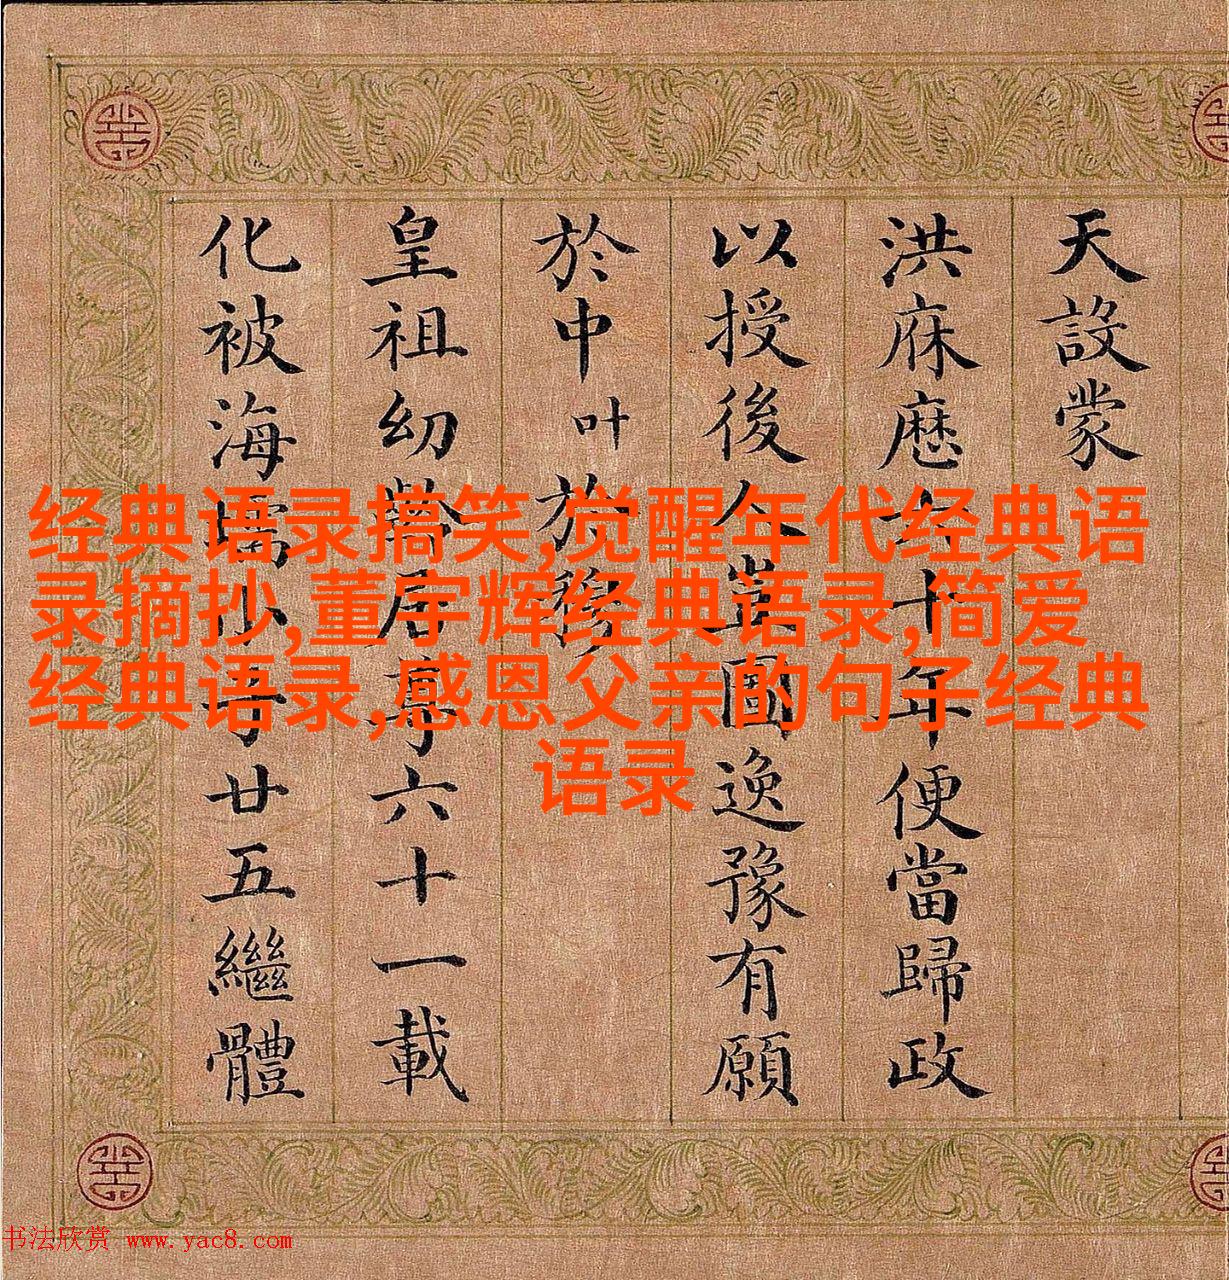 天設蒙
洪庥厯十年便當歸政
以授後人豈圖逸豫有願
於中叶於
皇祖幼居六十一載
化被海壖小子廿五繼體
经典语录搞笑,觉醒年代经典语
录摘抄,董宇辉经典语录,简爱
经典语录,感恩父亲的句子经典
语录
书法欣赏 www.yac8.com